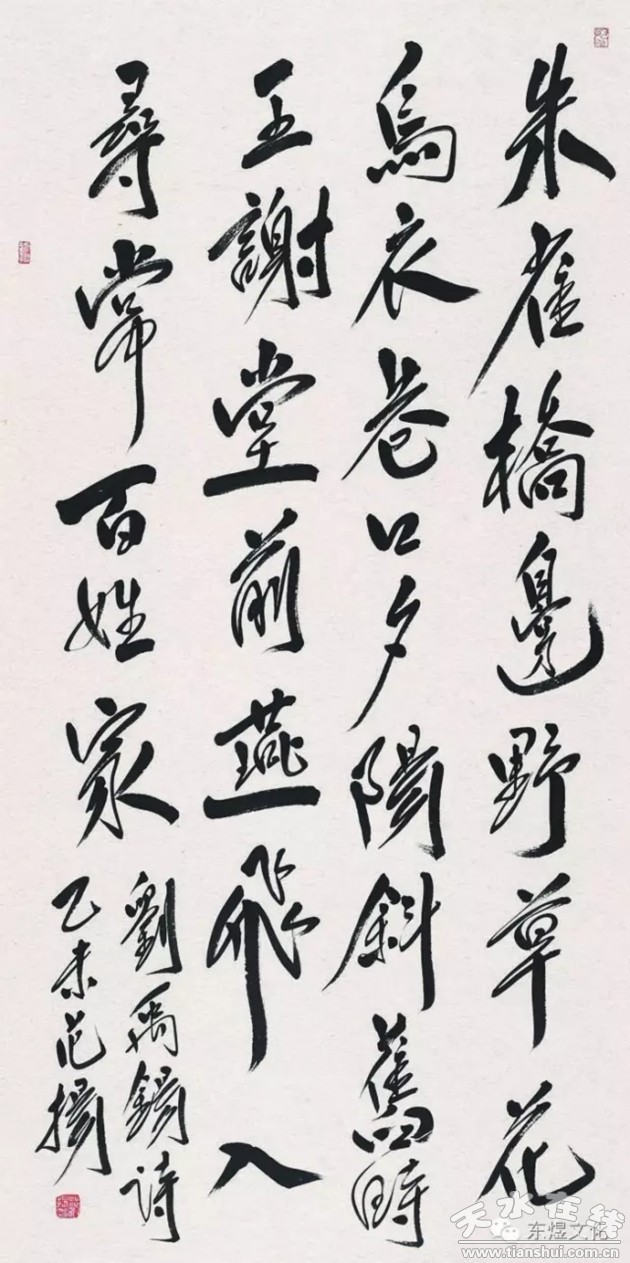 朱雀橋邊野草花
烏衣巷口夕陽斜舊時
王謝堂前燕飛入
尋常百姓家
劉禹錫詩
乙未范揚
天水在线
东煜文化
www.tianshui.com.cn